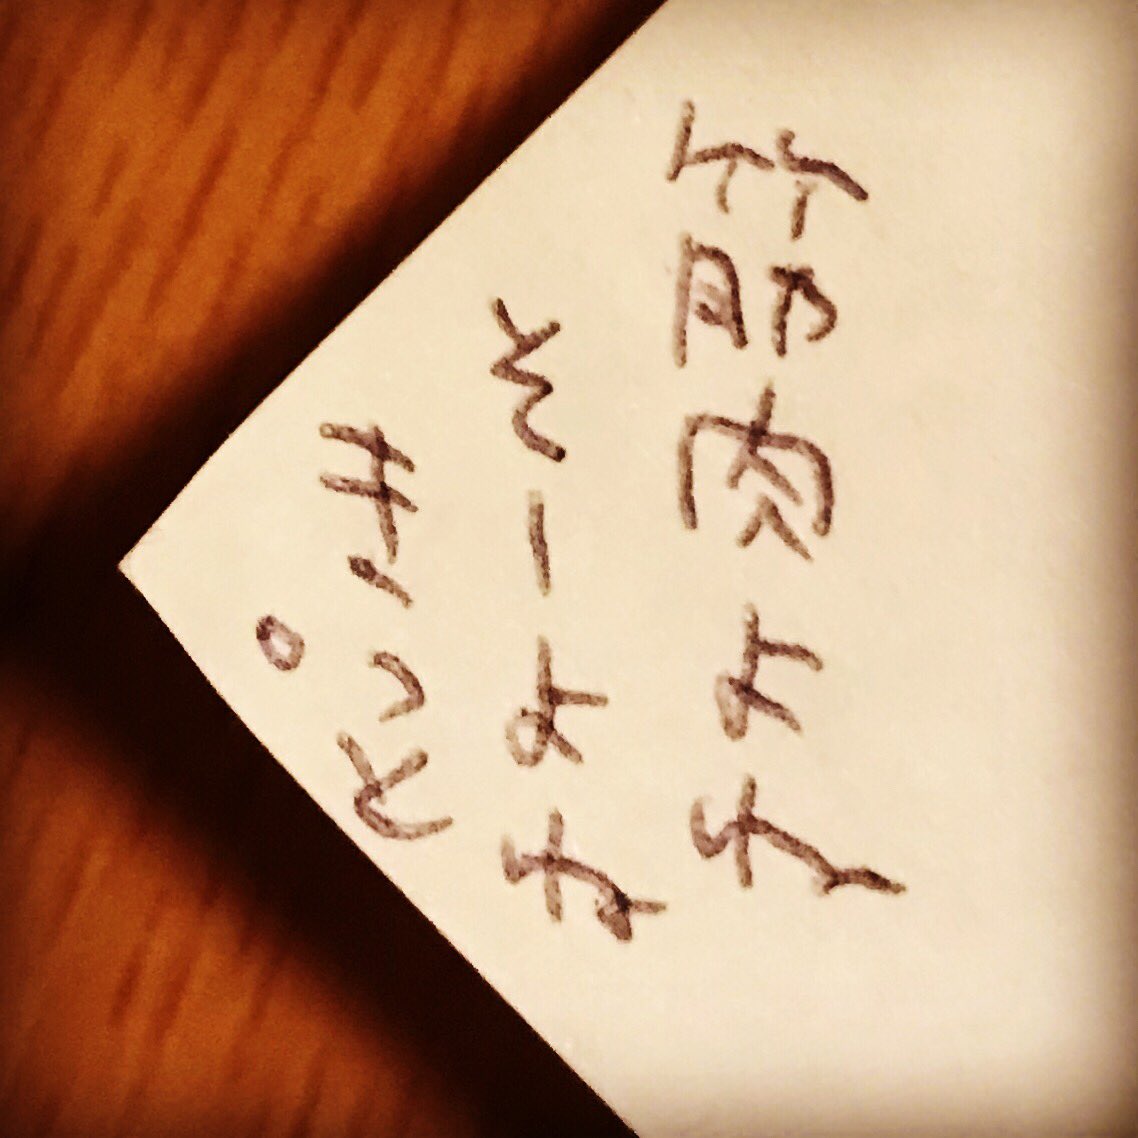 筋肉よね
そーよね
きっと。